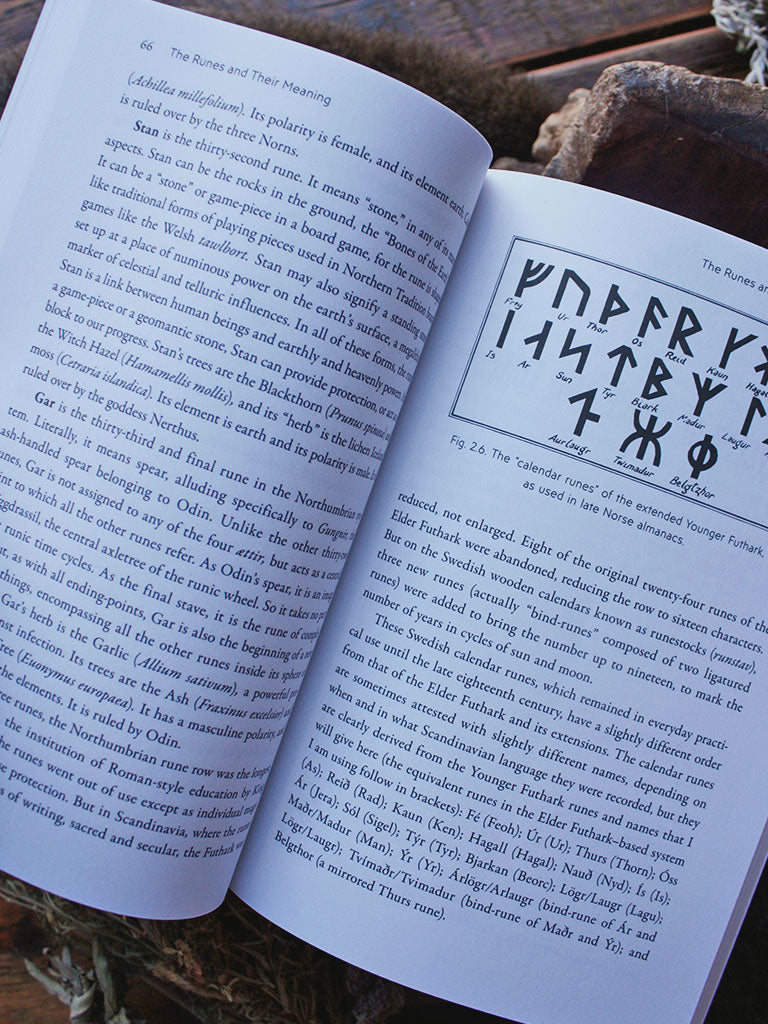 66 The Runes and Their Meaning
(Achillea millefolium). Its polarity is female, and its element earth.
is ruled over by the three Norns.
Stan is the thirty-second rune. It means “stone,” in any of its
aspects. Stan can be the rocks in the ground, the “Bones of the
It can be a “stone” or game-piece in a board game, for the rune is
like traditional forms of playing pieces used in Northern Tradition
games like the Welsh tawlbort. Stan may also signify a standing
set up at a place of numinous power on the earth’s surface, a
marker of celestial and telluric influences. In all of these forms, the
Stan is a link between human beings and earthly and heavenly power.
a game-piece or a geomantic stone, Stan can provide protection, or act
block to our progress. Stan’s trees are the Blackthorn (Prunus spinosa)
the Witch Hazel (Hamamellis mollis), and its “herb” is the lichen
moss (Cetraria islandica). Its element is earth and its polarity is male.
ruled over by the goddess Nerthus.
Gar is the thirty-third and final rune in the Northumbrian
tem. Literally, it means spear, alluding specifically to Gungnir,
ash-handled spear belonging to Odin. Unlike the other
Gar is not assigned to any of the four ættir, but acts as a
to which all the other runes refer. As Odin’s spear, it is an
the central axletree of the runic wheel. So it takes no
runic time cycles. As the final stave, it is the rune of
as with all ending-points, Gar is also the beginning of a
things, encompassing all the other runes inside its sphere
Gar’s herb is the Garlic (Allium sativum), a powerful
infection. Its trees are the Ash (Fraxinus excelsior)
(Euonymus europaea). It has a masculine polarity,
the elements. It is ruled by Odin.
runes, the Northumbrian rune row was the
the institution of Roman-style education by
runes went out of use except as individual
protection. But in Scandinavia, where the
of writing, sacred and secular, the Futhark
The Runes
ᚠ ᚢ ᚦ ᚨ ᚱ ᚴ
Frey Ur Thor Os Reid Kaun
ᛁ ᛅ ᛋ ᛏ ᛒ ᛘ
Is Ar Sun Tyr Biark Madur Laugur
Aurlaugr Twimadur Belgtzhor
Fig. 2.6. The “calendar runes” of the extended Younger Futhark
as used in late Norse almanacs.
reduced, not enlarged. Eight of the original twenty-four runes of the
Elder Futhark were abandoned, reducing the row to sixteen characters.
But on the Swedish wooden calendars known as runestocks (runstav),
three new runes (actually “bind-runes” composed of two ligatured
runes) were added to bring the number up to nineteen, to mark the
number of years in cycles of sun and moon.
These Swedish calendar runes, which remained in everyday practi-
cal use until the late eighteenth century, have a slightly different order
from that of the Elder Futhark and its extensions. The calendar runes
are sometimes attested with slightly different names, depending on
when and in what Scandinavian language they were recorded, but they
are clearly derived from the Younger Futhark runes and names that I
will give here (the equivalent runes in the Elder Futhark–based system
I am using follow in brackets): Fé (Feoh); Úr (Ur); Thurs (Thorn); Óss
(As); Reið (Rad); Kaun (Ken); Hagall (Hagal); Nauð (Nyd); Ís (Is);
Ár (Jera); Sól (Sigel); Týr (Tyr); Bjarkan (Beorc); Lögr/Laugr (Lagu);
Maðr/Madur (Man); Ýr (Yr); Árlögr/Arlaugr (bind-rune of Ár and
Lögr/Laugr); Tvímaðr/Tvimadur (bind-rune of Maðr and Ýr); and
Belgthor (a mirrored Thurs rune).